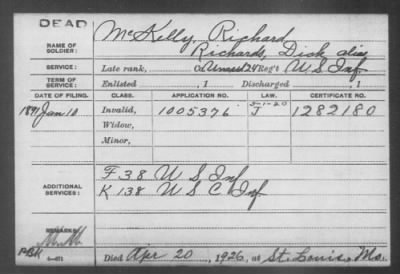 DEAD
NAME OF SOLDIER: McKelly, Richard
Richards, Dick alias
SERVICE: Late rank, Co. Unass 24 Reg't U. S. Inf.
TERM OF SERVICE: Enlisted , 1 Discharged , 1
DATE OF FILING. CLASS. APPLICATION NO. LAW. CERTIFICATE NO.
5-1-20
1891 Jan 10 Invalid, 1005376 J 1282180
Widow,
Minor,
ADDITIONAL SERVICES: F 38 U S Inf
K 138 U S C Inf
REMARKS:
Died Apr 20, 1926, at St. Louis, Mo.